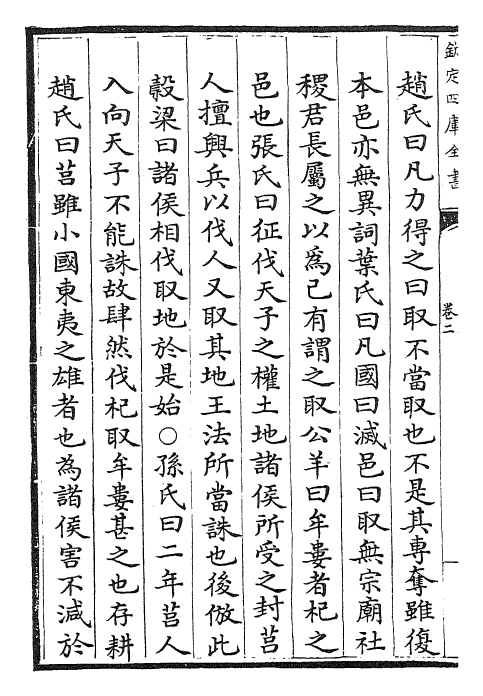 欽定四庫全書
卷二
趙氏曰凡力得之曰取不當取也不是其專奪雖復
本邑亦無異詞葉氏曰凡國曰滅邑曰取無宗廟社
稷君長屬之以為己有謂之取公羊曰牟婁者杞之
邑也張氏曰征伐天子之權土地諸侯所受之封莒
人擅興兵以伐人又取其地王法所當誅也後倣此
榖梁曰諸侯相伐取地於是始○孫氏曰二年莒人
入向天子不能誅故肆然伐杞取牟婁甚之也存耕
趙氏曰莒雖小國東夷之雄者也為諸侯害不減於